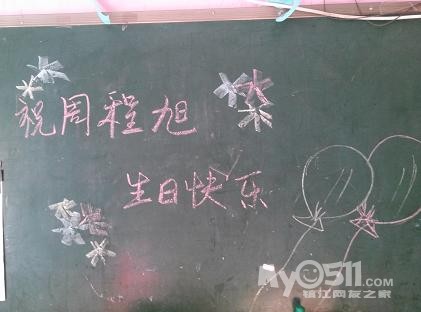 祝周程旭
生日快乐
my0511.com
镇江网友之家